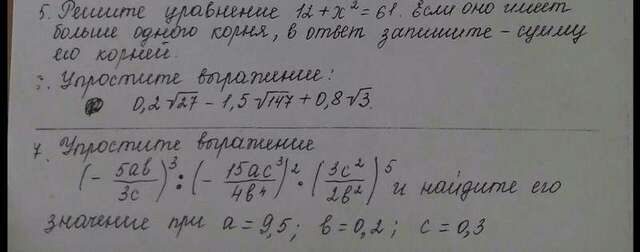 5. Решите уравнение 12 + x² = 61. Если оно имеет
больше одного корня, в ответ запишите – сумму
его корней.
6. Упростите выражение:
0,2√27 – 1,5√147 + 0,8√3.
7. Упростите выражение
(- 5ab/3c)³ : (- 15ac³/4b⁴)² · (3c²/2b²)⁵ и найдите его
значение при a = 9,5; b = 0,2; c = 0,3